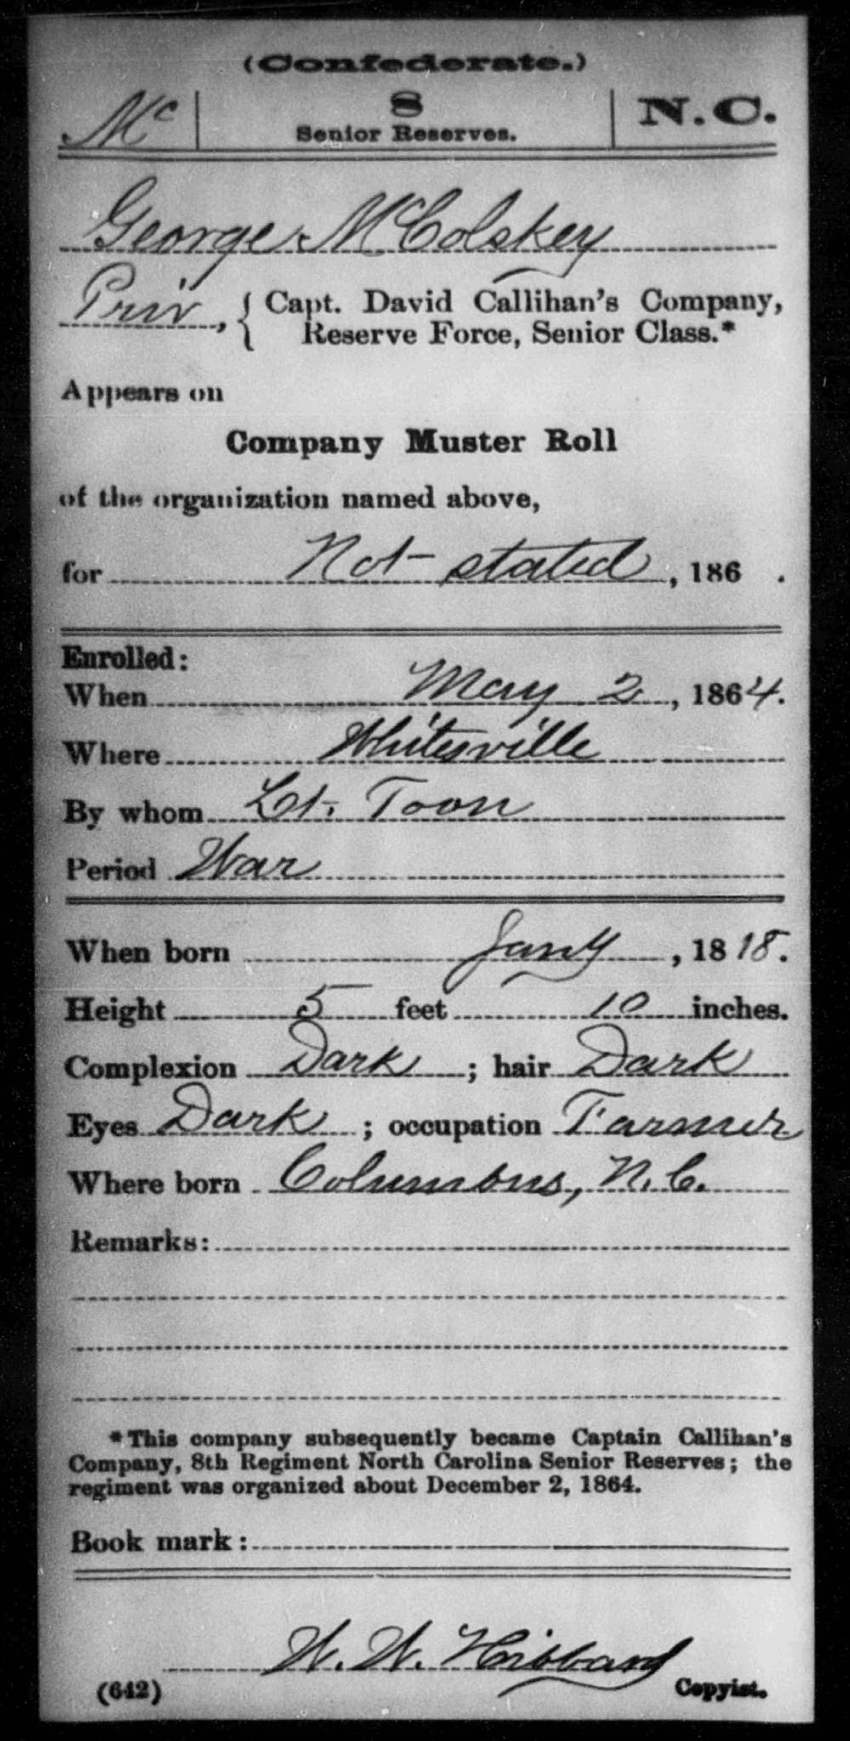 (Confederate.)
Mc | 8 | N.C.
Senior Reserves.
George McColskey
Priv, { Capt. David Callihan's Company,
Reserve Force, Senior Class.*
Appears on
Company Muster Roll
of the organization named above,
for Not stated, 186 .
Enrolled:
When May 2, 1864.
Where Whitesville
By whom Lt. Toon
Period War
When born Jany, 1818.
Height 5 feet 10 inches.
Complexion Dark; hair Dark
Eyes Dark; occupation Farmer
Where born Columbus, N.C.
Remarks:
*This company subsequently became Captain Callihan's
Company, 8th Regiment North Carolina Senior Reserves; the
regiment was organized about December 2, 1864.
Book mark:
W. W. Hibbard
(642) Copyist.